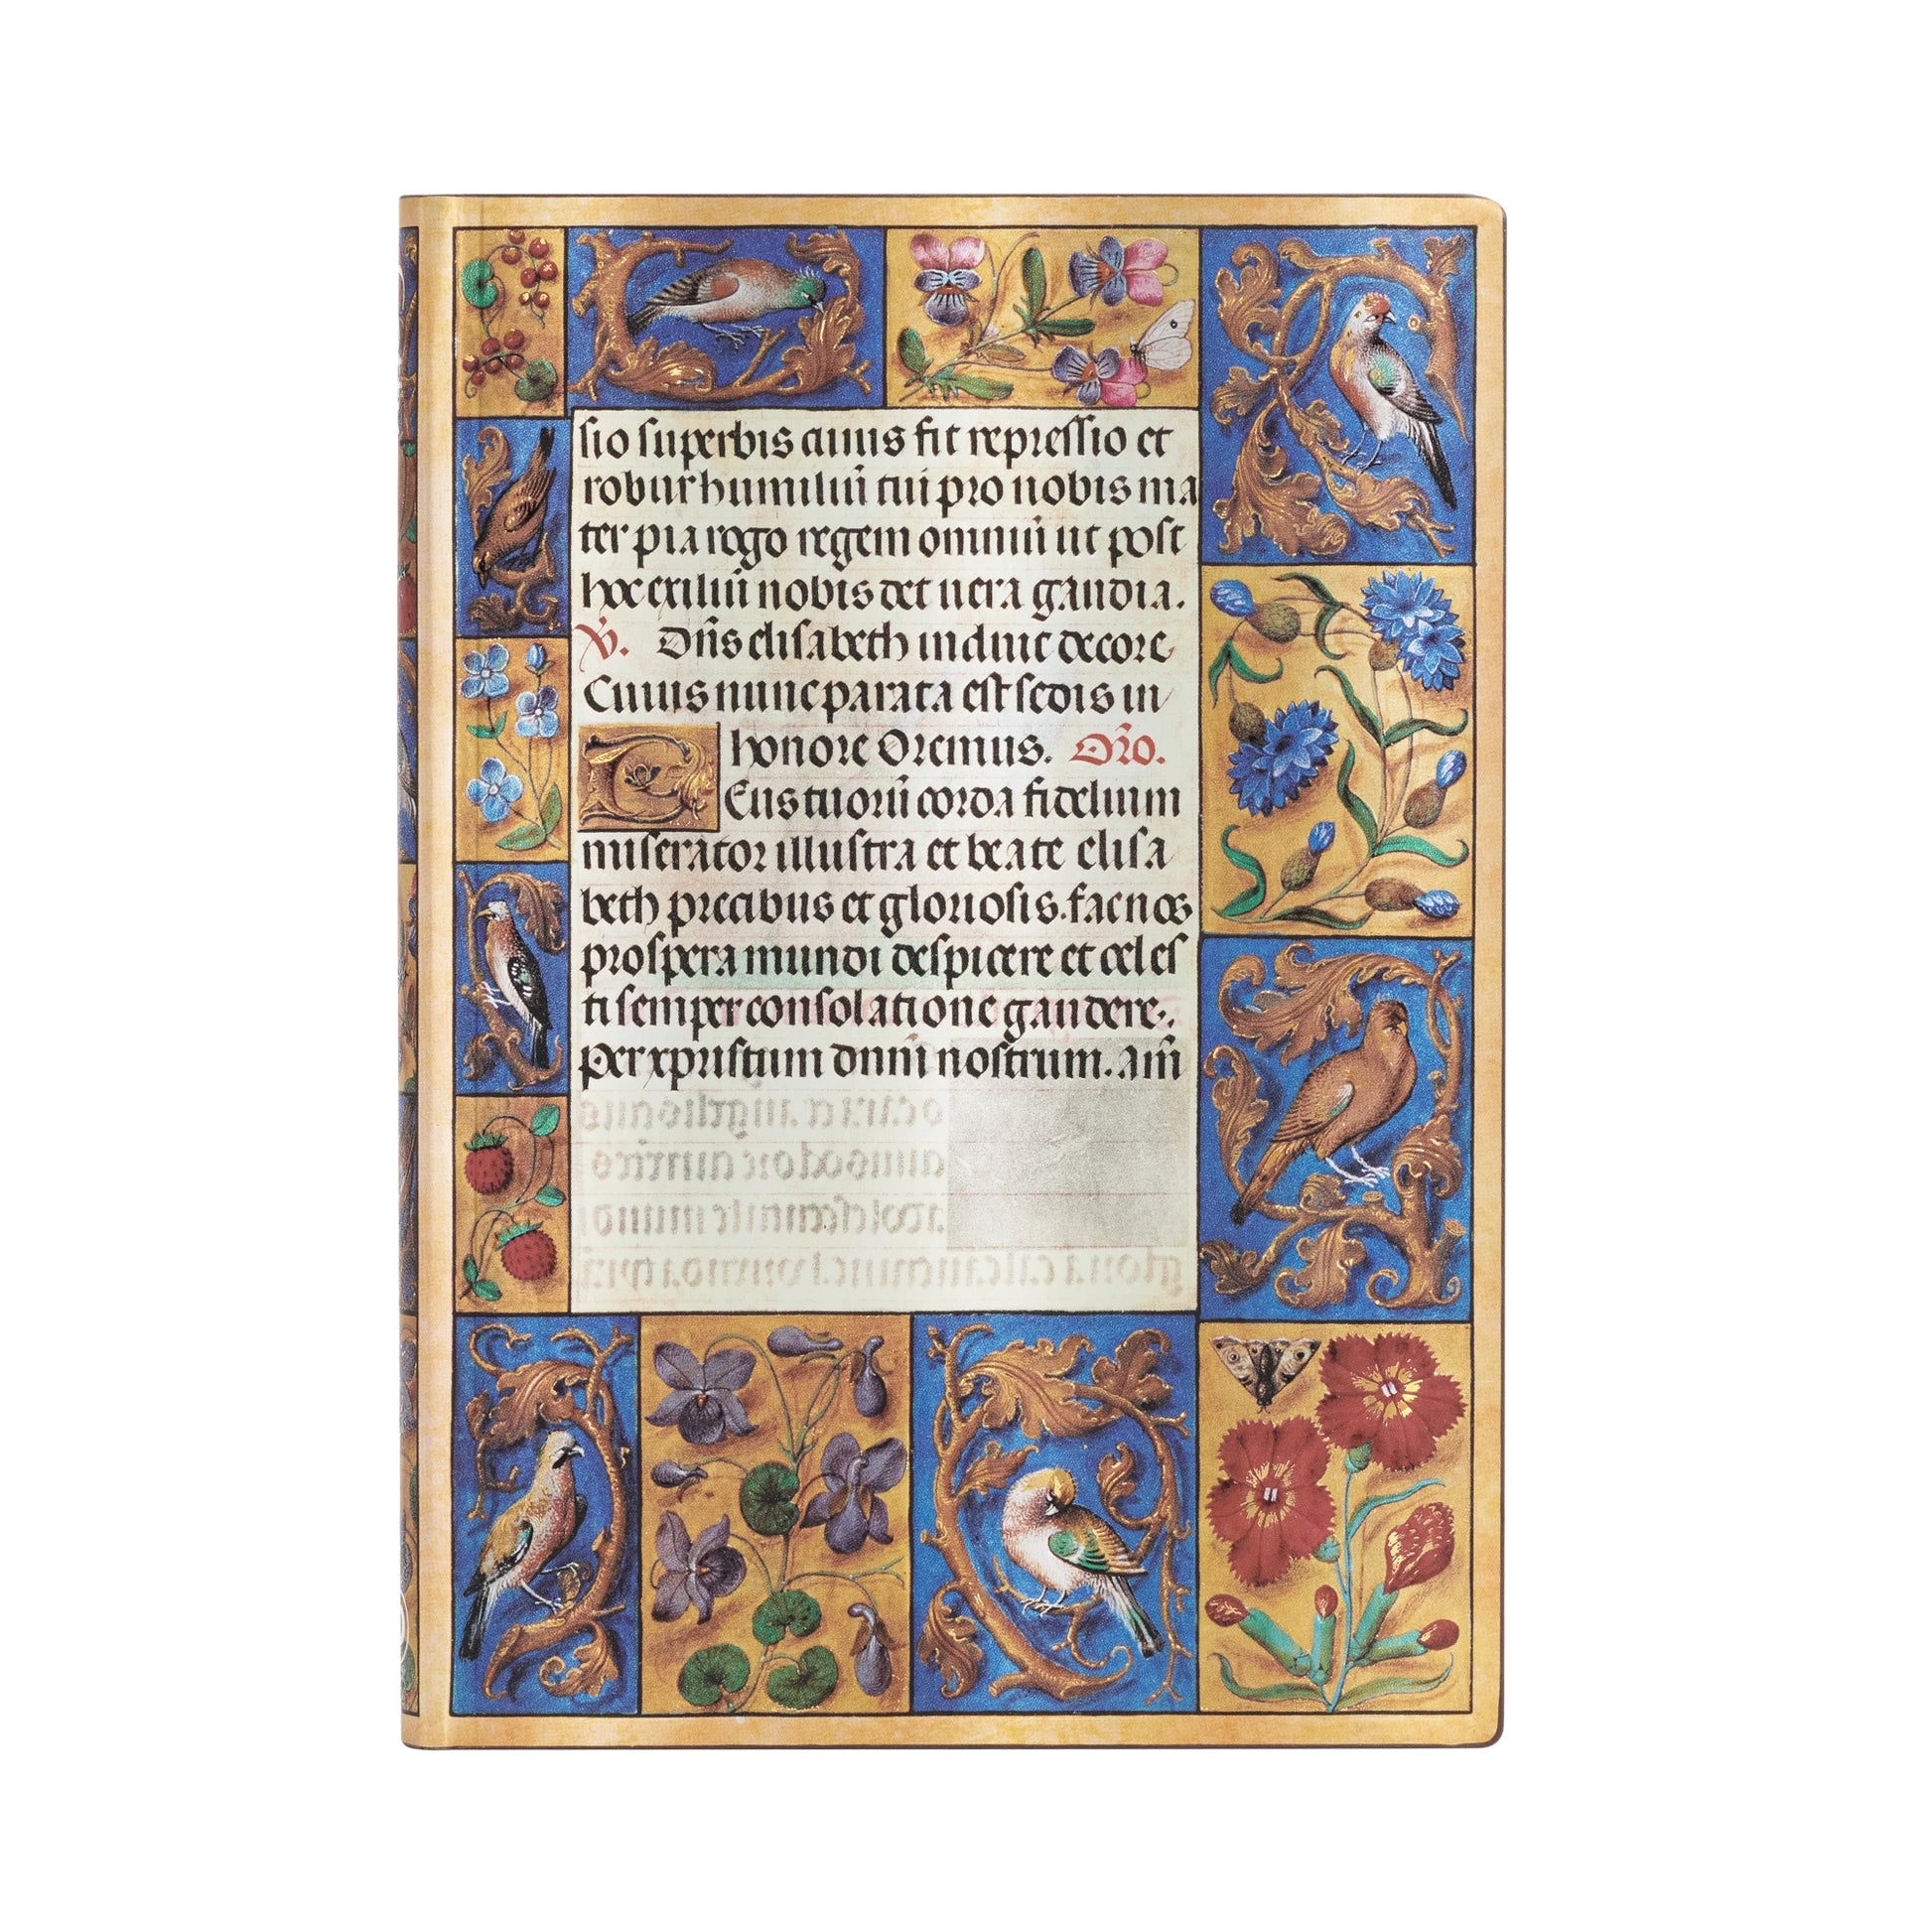 sio superbis cuius fit repressio et
robur humiliū tui pro nobis ma
ter pia rogo regem omniū ut post
hoc exiliū nobis det uera gaudia.
℣. Ora pro nobis elisabeth indiue decore
Cuius nunc parata est sedis in
honore Oremus. Or̃o.
Deus tuorū corda fidelium
miserator illustra et beate elisa
beth precibus et gloriosis. fac nos
prospera mundi despicere et celes
ti semper consolatione gaudere.
Per xp̄ristum dnm̄ nostrum. am̄